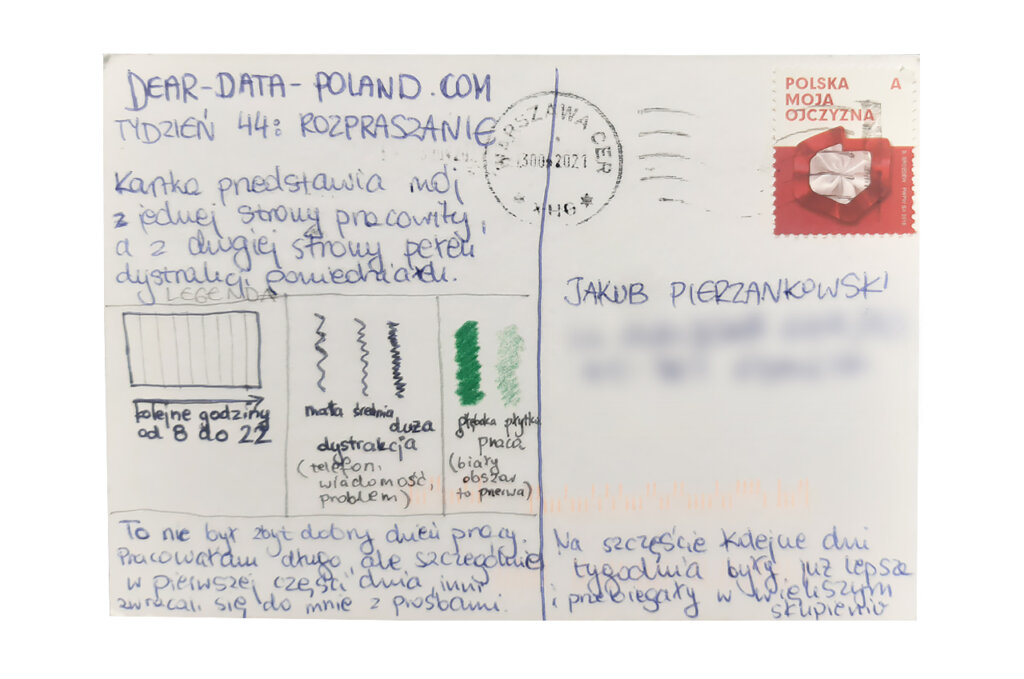 DEAR-DATA-POLAND.COM
TYDZIEŃ 44: ROZPRASZANIE
Kartka przedstawia mój
z jednej strony pracowity,
a z drugiej strony pełen
dystrakcji poniedziałek.
LEGENDA
kolejne godziny
od 8 do 22
mała średnia
duża
dystrakcja
(telefon,
wiadomość,
problem)
głęboka płytka
praca
(biały
obszar
to przerwa)
To nie był zbyt dobry dzień pracy.
Pracowałam długo, ale szczególnie
w pierwszej części dnia inni
zwracali się do mnie z prośbami.
WARSZAWA CER
2021
XHG
POLSKA A
MOJA
OJCZYZNA
JAKUB PIERZANKOWSKI
Na szczęście kolejne dni
tygodnia były już lepsze
i przebiegały w większym
skupieniu